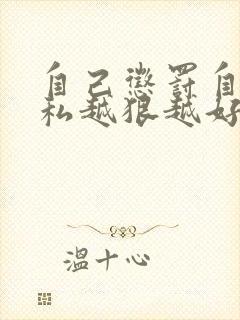 自己懲罰自
私越狠越好
溫十心